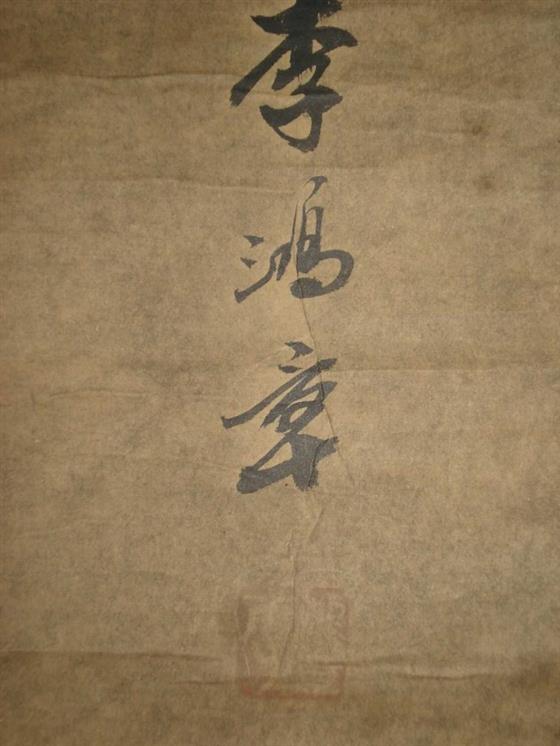 李鴻章